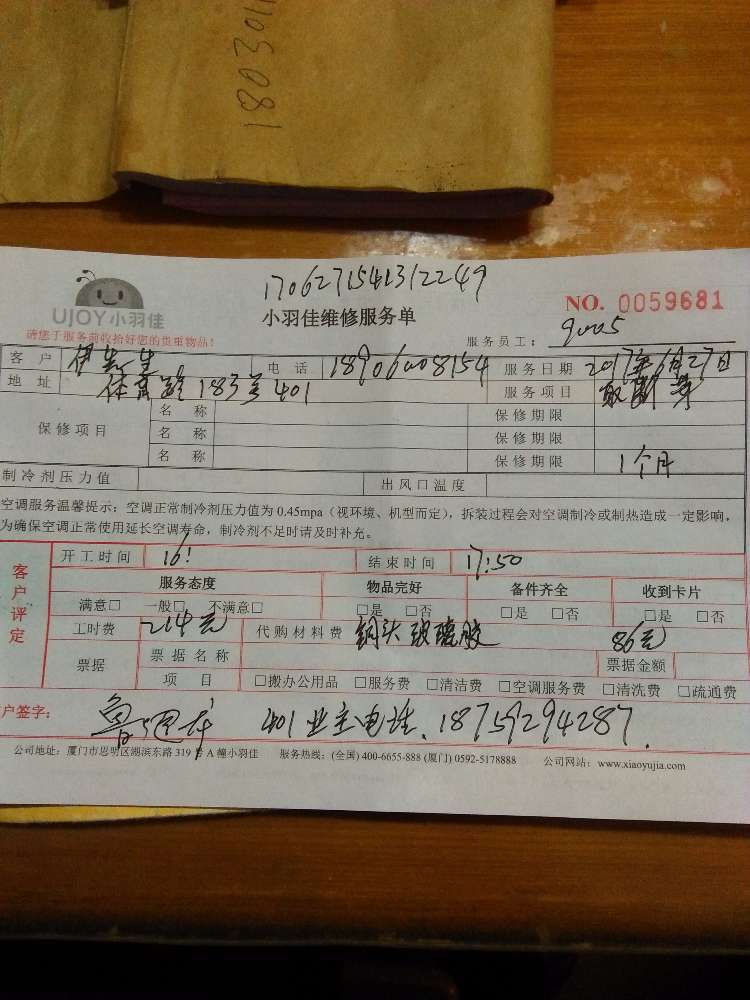 1803011
170627154131 2249
UJOY小羽佳
小羽佳维修服务单
NO. 0059681
请您于服务前收拾好您的贵重物品!
服务员工: 9005
客户 伊先生 电话 18906008154 服务日期 2017年6月27日
地址 体育路183号401 服务项目
保修项目 名称 保修期限
名称 保修期限
名称 保修期限 1个月
制冷剂压力值 出风口温度
空调服务温馨提示：空调正常制冷剂压力值为 0.45mpa（视环境、机型而定），拆装过程会对空调制冷或制热造成一定影响，
为确保空调正常使用延长空调寿命，制冷剂不足时请及时补充。
客户评定
开工时间 16: 结束时间 17:50
服务态度 物品完好 备件齐全 收到卡片
满意□ 一般□ 不满意□ □是 □否 □是 □否 □是 □否
工时费 214元 代购材料费 铜头 玻璃胶 86元
票据 票据名称 票据金额
项目 □搬办公用品 □服务费 □清洁费 □空调服务费 □清洗费 □疏通费
户签字: 401业主电话. 18759294287.
公司地址: 厦门市思明区湖滨东路 319 号 A 幢小羽佳 服务热线: (全国) 400-6655-888 (厦门) 0592-5178888 公司网站: www.xiaoyujia.com